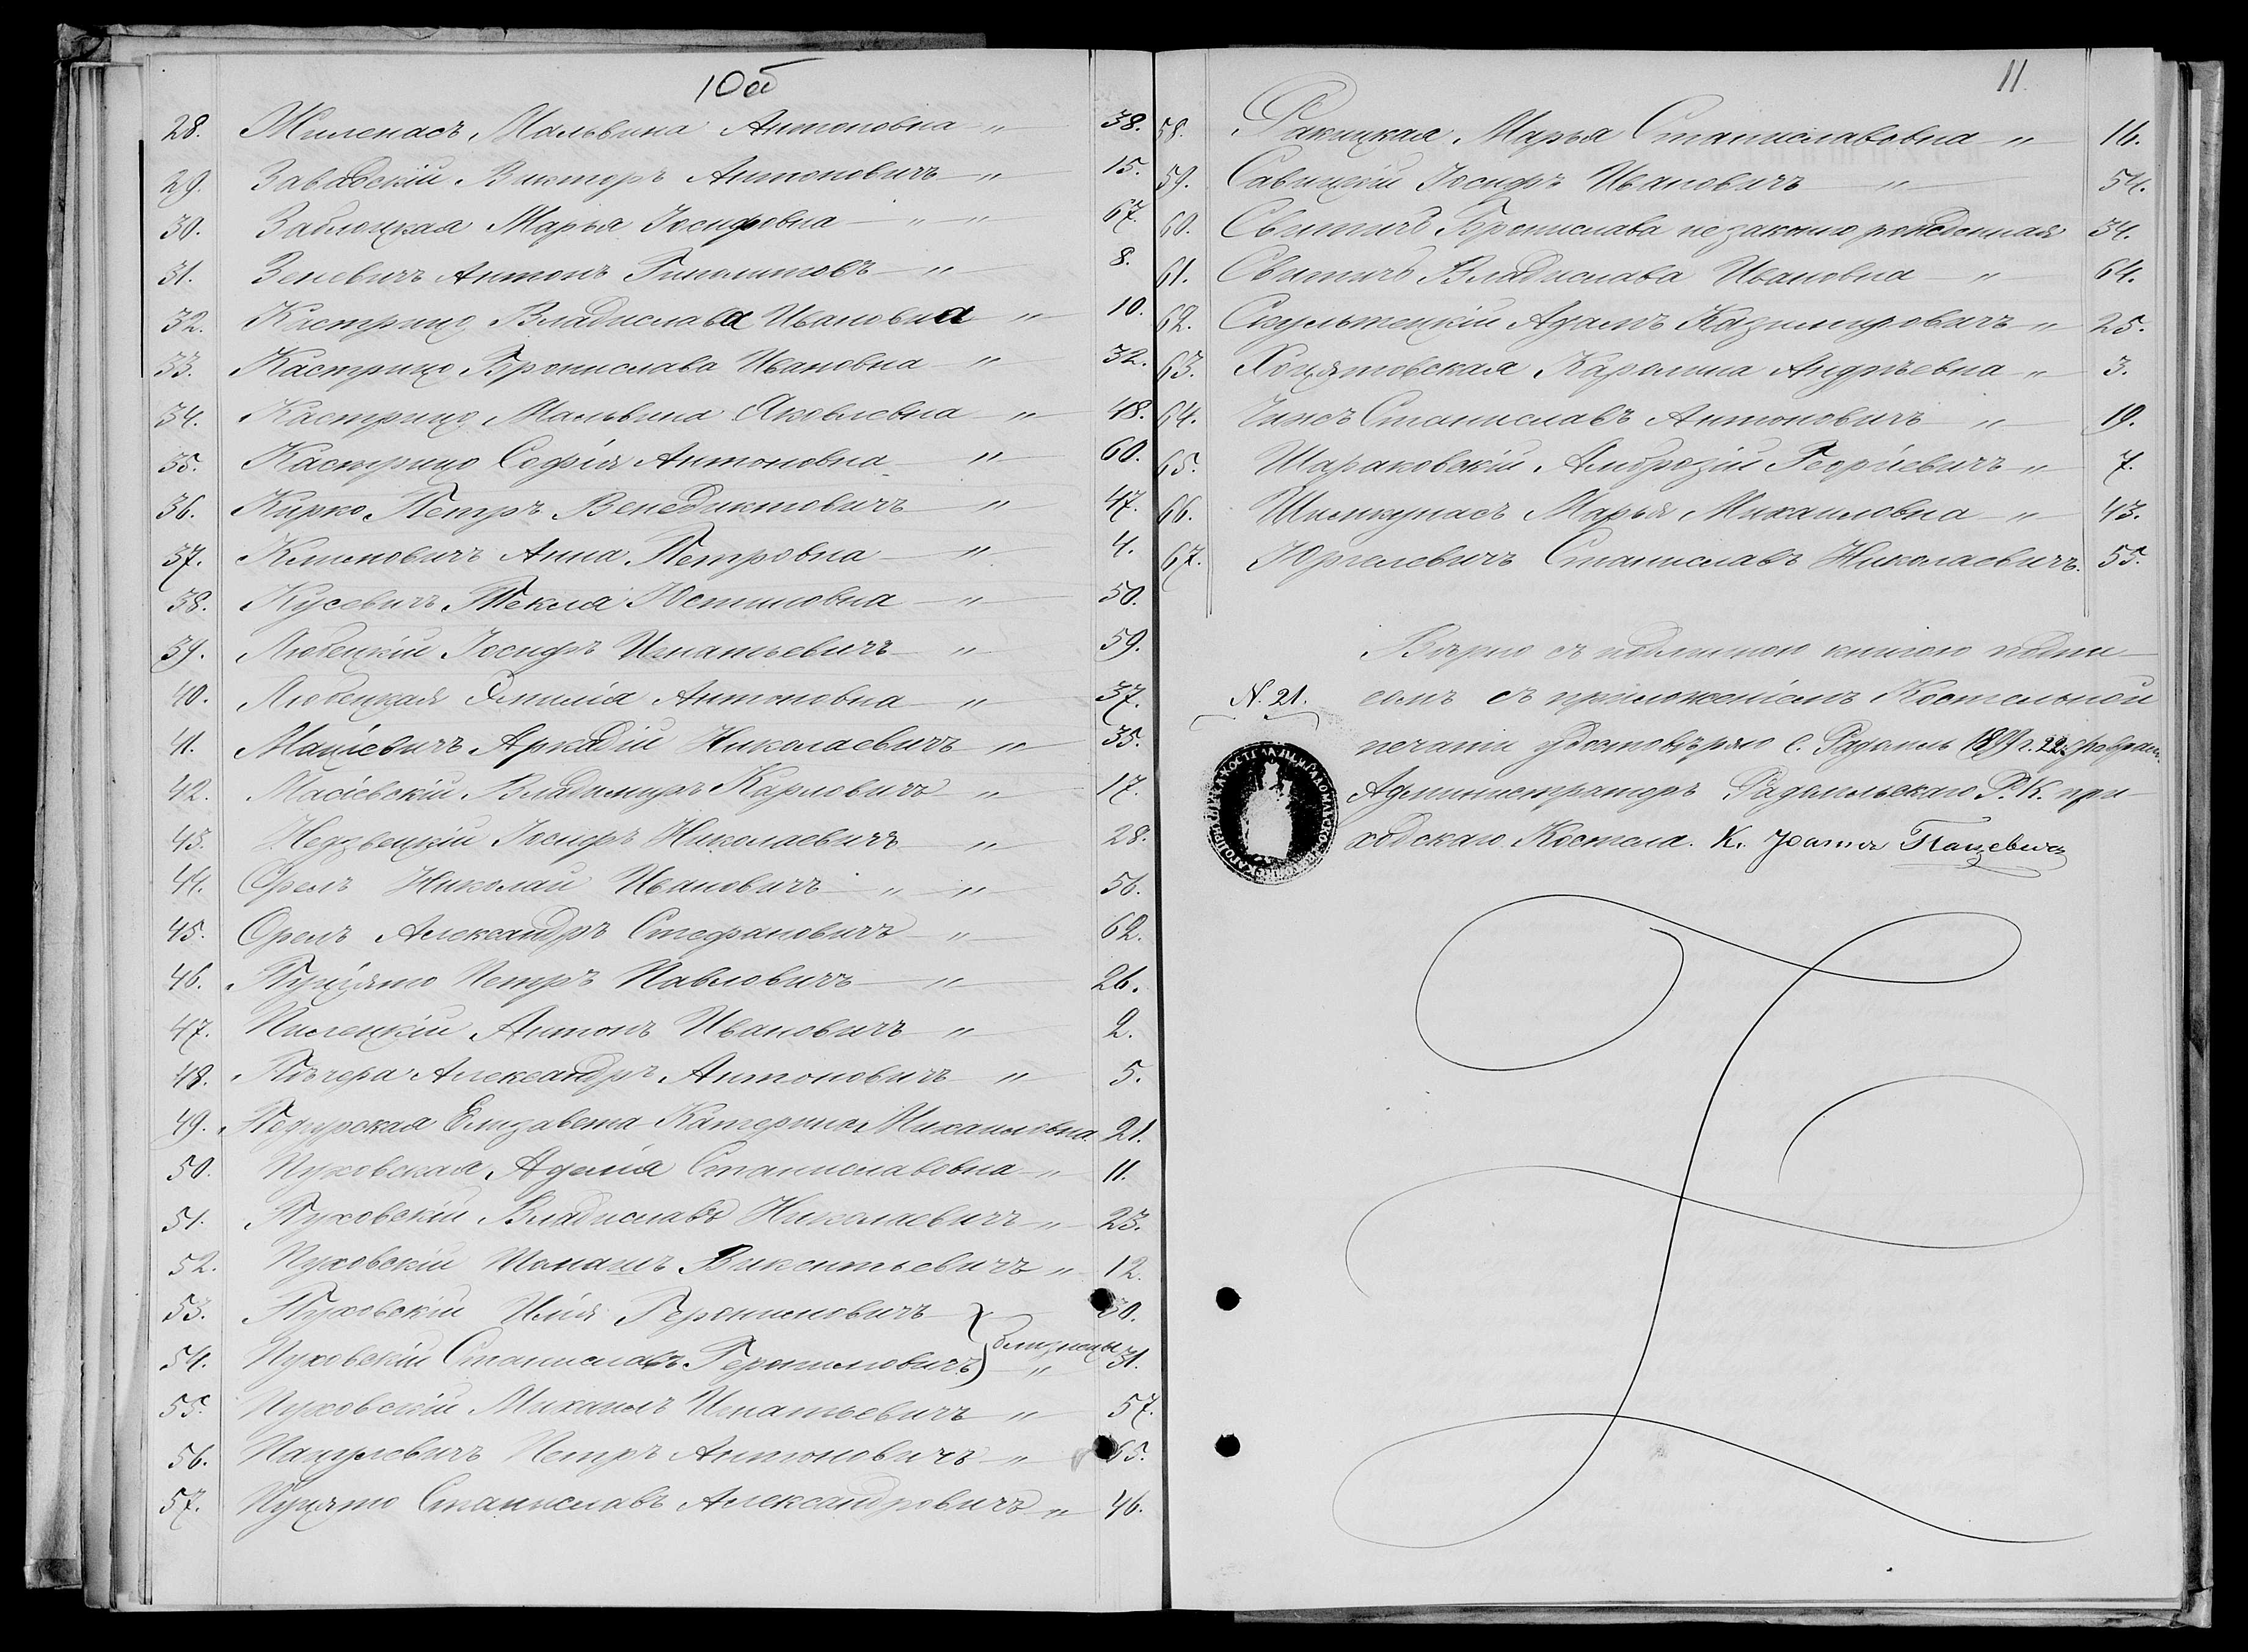 10об
28. Миленасъ Мальвина Антоновна " 38.
29. Завадскій Викторъ Антоновичъ " 15.
30. Заблоцкая Марья Іосифовна " " 67.
31. Зеневичъ Антонъ Гиполитовъ " 8.
32. Кастрицо Владислава Ивановна " 10.
33. Кастрицо Бронислава Ивановна " 32.
34. Кастрицо Мальвина Яковлевна " 48.
35. Кастрицо Софія Антоновна " 60.
36. Кирко Петръ Венедиктовичъ " 47.
37. Климовичъ Анна Петровна " 4.
38. Кусевичъ Текля Юстиновна " 50.
39. Любецкій Іосифъ Игнатьевичъ " 59.
40. Любецкая Эмилія Антоновна " 37.
41. Маціевичъ Аркадій Николаевичъ " 35.
42. Масіевскій Владимиръ Карловичъ " 17.
43. Недзвецкій Іосифъ Николаевичъ " 28.
44. Орелъ Николай Ивановичъ " " 56.
45. Орелъ Александръ Стефановичъ " 62.
46. Пуцято Петръ Павловичъ " 26.
47. Пилецкій Антонъ Ивановичъ " 2.
48. Пѣчера Александръ Антоновичъ " 5.
49. Елизавета Катерина Михайловна 21.
50. Пуховская Аделія Станиславовна " 11.
51. Пуховскій Владиславъ Николаевичъ " 23.
52. Пуховскій Викентьевичъ " 12.
53. Пуховскій Илія Геронимовичъ 30.
близнецы
54. Пуховскій Станиславъ Геронимовичъ " 31.
55. Пуховскій Михаилъ Игнатьевичъ " 57.
56. Пацулевичъ Петръ Антоновичъ " 65.
57. Пуцято Станиславъ Александровичъ " 46.
11.
58. Ракицкая Марья Станиславовна " 16.
59. Савицкій Іосифъ Ивановичъ " 54.
60. Свитичъ Бронислава незаконно рожденная 34.
61. Свитичъ Владислава Ивановна " 64.
62. Скультецкій Адамъ Казимировичъ " 25.
63. Хоцятовская Каролина Андрѣевна " 3.
64. Чижъ Станиславъ Антоновичъ " 19.
65. Шараковскій Амброзій Георгіевичъ " 7.
66. Шимкунасъ Марья Михайловна " 43.
67. Юргелевичъ Станиславъ Николаевичъ. 55.
Вѣрно съ подлинною книгою подпи-
N. 21. сомъ съ приложеніемъ Костельной
печати удостовѣряю с. 1899 г. 22. февраля.
Администраторъ Р. К. при-
ходскаго Костела. К.